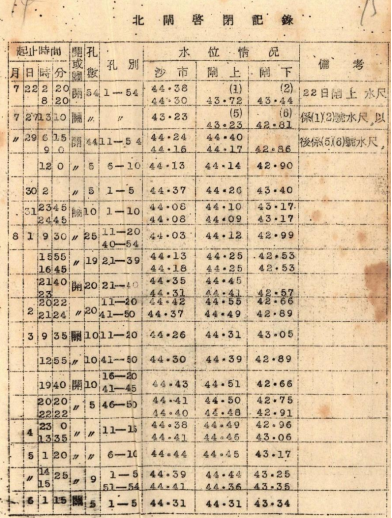 北閘啓閉記錄
起止時間 開或關 孔數 孔別 水位情况 備考
月 日 時 分 沙市 閘上 閘下
7 22 2 20 開 54 1—54 44.38 (1) (2) 22日閘上水尺
8 20 44.30 43.72 43.44
7 27 13 10 關 〃 〃 43.23 (5) (6) 係(1)(2)號水尺,以
43.23 42.81
〃 29 6 15 開 44 11—54 44.24 44.40 後係(5)(6)號水尺,
9 0 44.16 44.17 42.86
12 0 〃 5 6—10 44.13 44.14 42.90
30 2 〃 5 1—5 44.37 44.26 43.40
31 23 45 關 10 1—10 44.08 44.10 43.17
24 45 44.08 44.09 43.17
8 1 9 30 〃 25 11—20 44.03 44.12 42.99
40—54
15 55 〃 19 21—39 44.13 44.25 42.53
16 45 44.18 44.25 42.53
21 40 開 20 21—40 44.35 44.45
23 44.31 44.41 42.57
2 20 22 〃 20 11—20 44.42 44.55 42.66
21 24 41—50 44.37 44.49 42.89
3 9 35 關 10 11—20 44.26 44.31 43.05
12 55 〃 10 41—50 44.30 44.39 42.89
19 40 開 10 16—20 44.43 44.51 42.66
41—45
20 20 〃 5 46—50 44.41 44.50 42.75
22 22 44.40 44.48 42.91
4 23 0 〃 〃 11—15 44.38 44.49 42.96
13 35 44.41 44.46 43.06
5 1 20 〃 〃 6—10 44.44 44.45 43.17
〃 14 25 〃 9 1—5 44.39 44.44 43.25
15 51—54 44.41 44.36 43.35
6 1 15 關 5 1—5 44.31 44.31 43.34